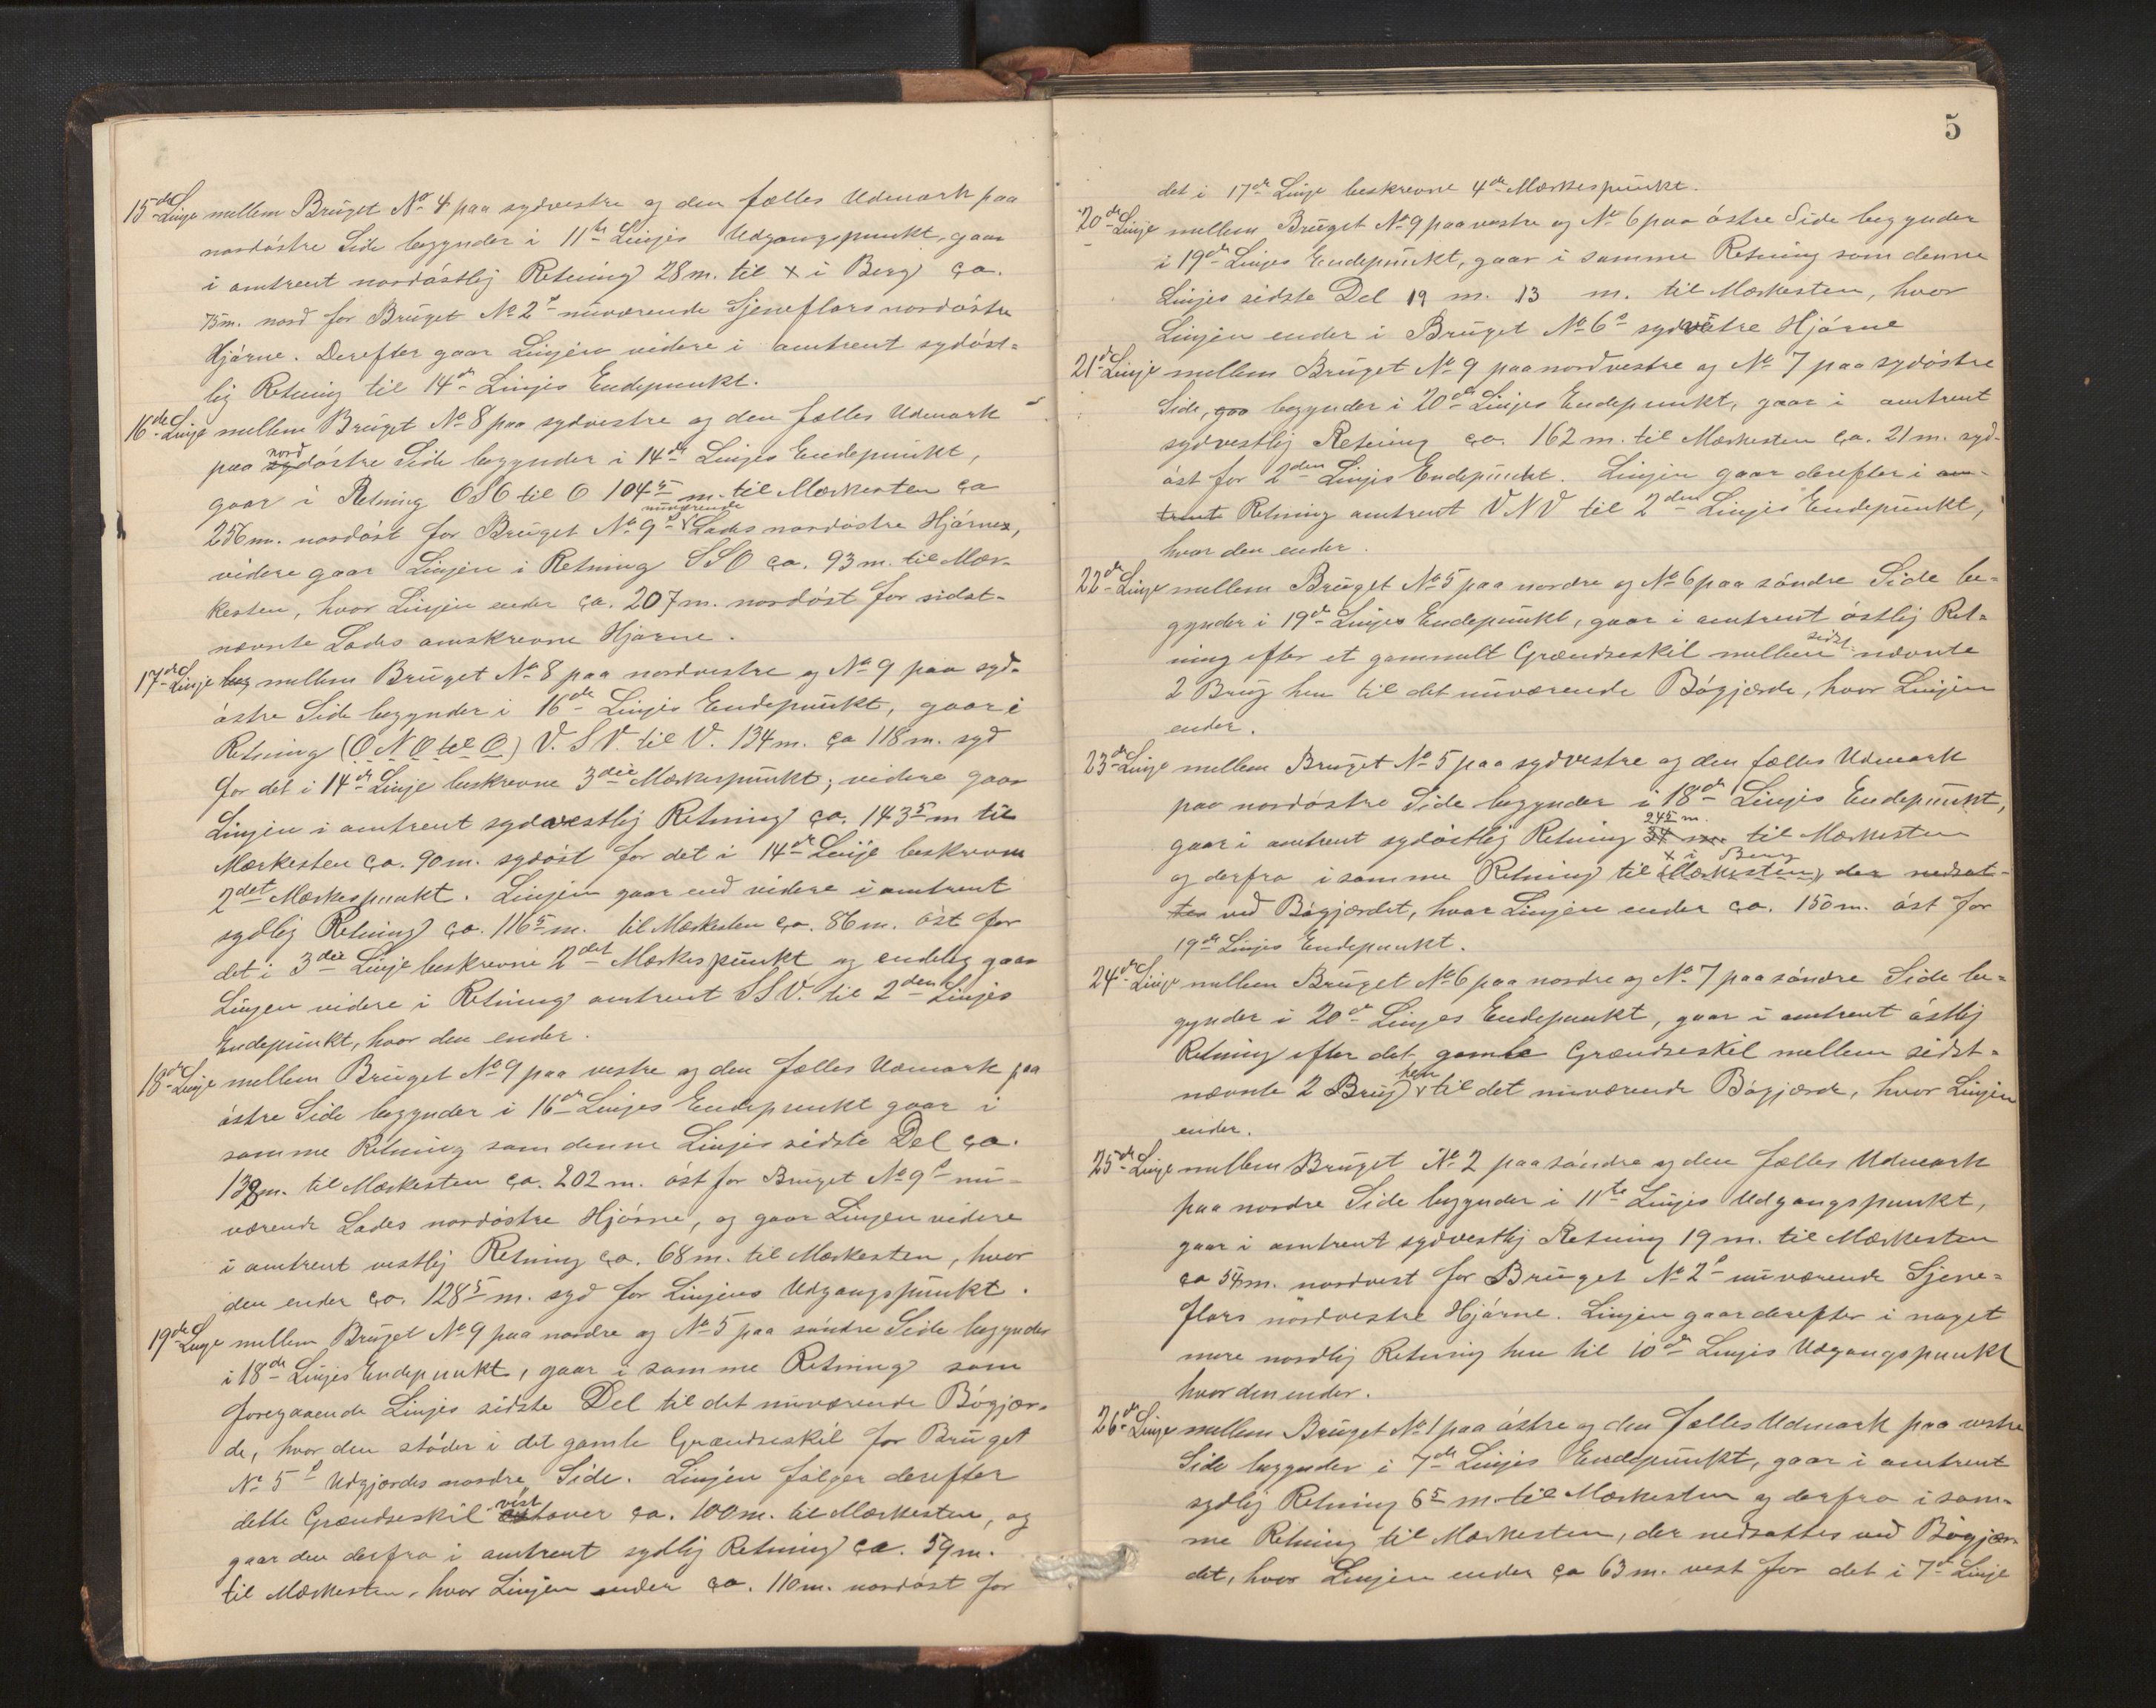 15de Linje mellem Bruget No 4 paa sydvestre og den fælles Udmark paa
nordóstre Side begynder i 11te Linjes Udgangspunkt, gaar
i omtrent nordóstlig Retning 28 m. til x i Berg ca.
75 m. nord for Bruget No 2s nuværende Sjeneflors nordóstre
Hjórne. Derefter gaar Linjen videre i omtrent sydóst-
lig Retning til 14de Linjes Endepunkt.
16de Linje mellem Bruget No 8 paa sydvestre og den fælles Udmark
paa nordóstre Side begynder i 14de Linjes Endepunkt,
gaar i Retning OSO til O 104⁵ m. til Mærkesten ca
256 m. nordóst for Bruget No 9s nuværende Lades nordóstre Hjórne,
videre gaar Linjen i Retning SSO ca. 93 m. til Mær-
kesten, hvor Linjen ender ca. 207 m. nordóst for sidst-
nævnte Lades omskrevne Hjórne.
17de Linje mellem Bruget No 8 paa nordvestre og No 9 paa syd-
óstre Side begynder i 16de Linjes Endepunkt, gaar i
Retning (O N O til O) V. S V. til V. 134 m. ca 118 m. syd
for det i 14de Linje beskrevne 3die Mærkespunkt, videre gaar
Linjen i omtrent sydvestlig Retning ca. 143⁵ m til
Mærkesten ca. 90 m. sydóst for det i 14de Linje beskrevne
2det Mærkespunkt. Linjen gaar end videre i omtrent
sydlig Retning ca. 116⁵ m. til Mærkesten ca. 86 m. óst for
det i 3die Linje beskrevne 2det Mærkespunkt og endelig gaar
Linjen videre i Retning omtrent SSV. til 2den Linjes
Endepunkt, hvor den ender.
18de Linje mellem Bruget No 9 paa vestre og den fælles Udmark paa
óstre Side begynder i 16de Linjes Endepunkt gaar i
samme Retning som denne Linjes sidste Del ca.
m. til Mærkesten ca. 202 m. óst for Bruget No 9s nu-
værende Lades nordóstre Hjórne, og gaar Linjen videre
i omtrent vestlig Retning ca. 68 m. til Mærkesten, hvor
den ender ca. 128⁵ m. syd for Linjens Udgangspunkt.
19de Linje mellem Bruget No 9 paa nordre og No 5 paa sóndre Side begynder
i 18de Linjes Endepunkt, gaar i samme Retning som
foregaaende Linjes sidste Del til det nuværende Bógjær-
de, hvor den stóder i det gamle Grændseskil for Bruget
No 5s Udgjærdes nordre Side. Linjen fólger derefter
dette Grændseskil vestover ca. 100 m. til Mærkesten, og
gaar den derfra i omtrent sydlig Retning ca. 59 m.
til Mærkesten, hvor Linjen ender ca. 110 m. nordóst for
5
det i 17de Linje beskrevne 4de Mærkespunkt.
20de Linje mellem Bruget No 9 paa vestre og No 6 paa óstre Side begynder
i 19de Linjes Endepunkt, gaar i samme Retning som denne
Linjes sidste Del 19 m. 13 m. til Mærkesten, hvor
Linjen ender i Bruget No 6s sydvestre Hjórne
21de Linje mellem Bruget No 9 paa nordvestre og No 7 paa sydóstre
Side, gaa begynder i 20de Linjes Endepunkt, gaar i omtrent
sydvestlig Retning ca. 162 m. til Mærkesten ca. 21 m. syd-
óst for 2den Linjes Endepunkt. Linjen gaar derefter i om-
trent Retning omtrent VNV til 2den Linjes Endepunkt,
hvor den ender.
22de Linje mellem Bruget No 5 paa nordre og No 6 paa sóndre Side be-
gynder i 19de Linjes Endepunkt, gaar i omtrent óstlig Ret-
ning efter et gammelt Grændseskil mellem sidst nævnte
2 Brug hen til det nuværende Bógjærde, hvor Linjen
ender.
23de Linje mellem Bruget No 5 paa sydvestre og den fælles Udmark
paa nordóstre Side begynder i 18de Linjes Endepunkt,
gaar i omtrent sydóstlig Retning 24⁵ m. til Mærkesten
og derfra i samme Retning til x i Berg (Mærkesten), der nedsat-
tes ved Bógjærdet, hvor Linjen ender ca. 150 m. óst for
19de Linjes Endepunkt.
24de Linje mellem Bruget No 6 paa nordre og No 7 paa sóndre Side be-
gynder i 20de Linjes Endepunkt, gaar i omtrent óstlig
Retning efter det gamle Grændseskil mellem sidst-
nævnte 2 Brug hen til det nuværende Bógjærde, hvor Linjen
ender.
25de Linje mellem Bruget No 2 paa sóndre og den fælles Udmark
paa nordre Side begynder i 11te Linjes Udgangspunkt,
gaar i omtrent sydvestlig Retning 19 m. til Mærkesten
ca 54 m. nordvest for Bruget No 2s nuværende Sjene-
flors nordvestre Hjórne. Linjen gaar derefter i noget
mere nordlig Retning hen til 10de Linjes Udgangspunkt
hvor den ender.
26de Linje mellem Bruget No 1 paa óstre og den fælles Udmark paa vestre
Side begynder i 7de Linjes Endepunkt, gaar i omtrent
sydlig Retning 6⁵ m. til Mærkesten og derfra i sam-
me Retning til Mærkesten, der nedsattes ved Bógjær-
det, hvor Linjen ender ca 63 m. vest for det i 7de Linje